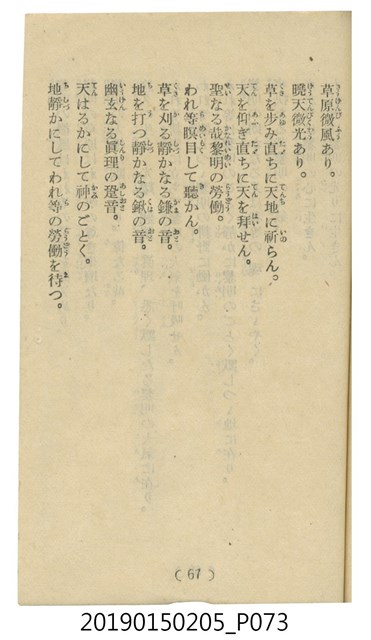 草原微風あり。
曉天微光あり。
草を歩み直ちに天地に祈らん。
天を仰ぎ直ちに天を拜せん。
聖なる哉黎明の勞働。
われ等瞑目して聽かん。
草を刈る靜かなる鎌の音。
地を打つ靜かなる鍬の音。
幽玄なる眞理の跫音。
天はるかにして神のごとく。
地靜かにしてわれ等の勞働を待つ。
(67)
20190150205_P073